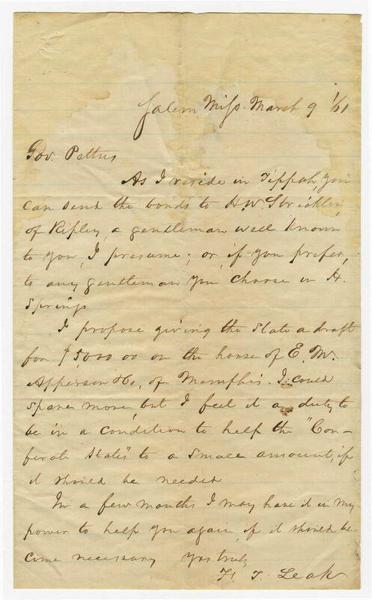 Salem Miss. March 9 /61
Gov. Pettus
As I reside in Tippah, you
can send the bonds to H. W. Strickling
of Ripley, a gentleman well known
to you, I presume; or, if you prefer,
to any gentleman you choose in H.
Springs
I propose giving the State a draft
for $5000 00 on the house of E. M.
Apperson & Co, of Memphis. I could
spare more, but I feel it a duty to
be in a condition to help the "Con-
federate States" to a small amount, if
it should be needed
In a few months I may have it in my
power to help you again if it should be-
come necessary Yrs truly
F. T. Leak